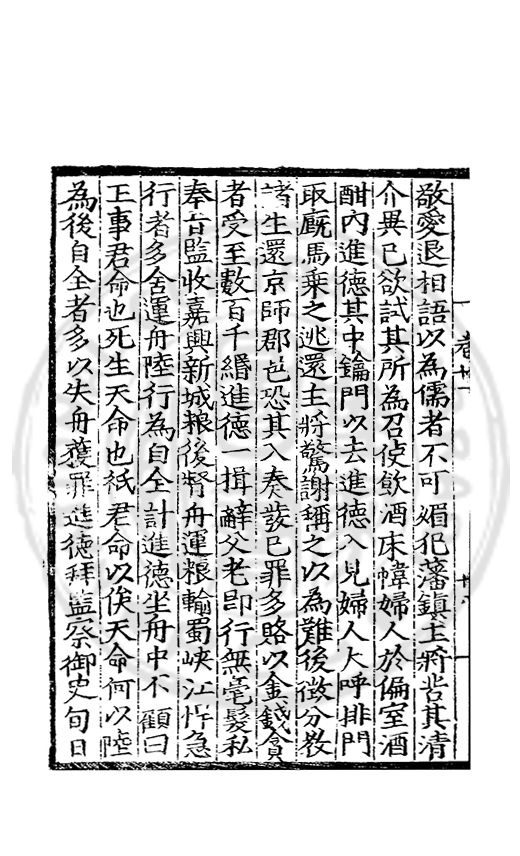 敬愛退相語以為儒者不可媚犯藩鎮主將訾其清
介異己欲試其所為召使飲酒床幃婦人於偏室酒
酣內進德其中鑰門以去進德入見婦人大呼排門
取廐馬乘之逃還主將驚謝稱之以為難後徴分教
諸生還京師郡邑恐其入奏發己罪多賂以金錢貪
者受至數百千緡進德一揖辭父老即行無毫髮私
奉旨監收嘉興新城粮後督舟運粮輸蜀峽江悍急
行者多舍運舟陸行為自全計進德坐舟中不顧曰
王事君命也死生天命也祇君命以俟天命何以陸
為後自全者多以失舟獲罪進德拜監察御史旬日